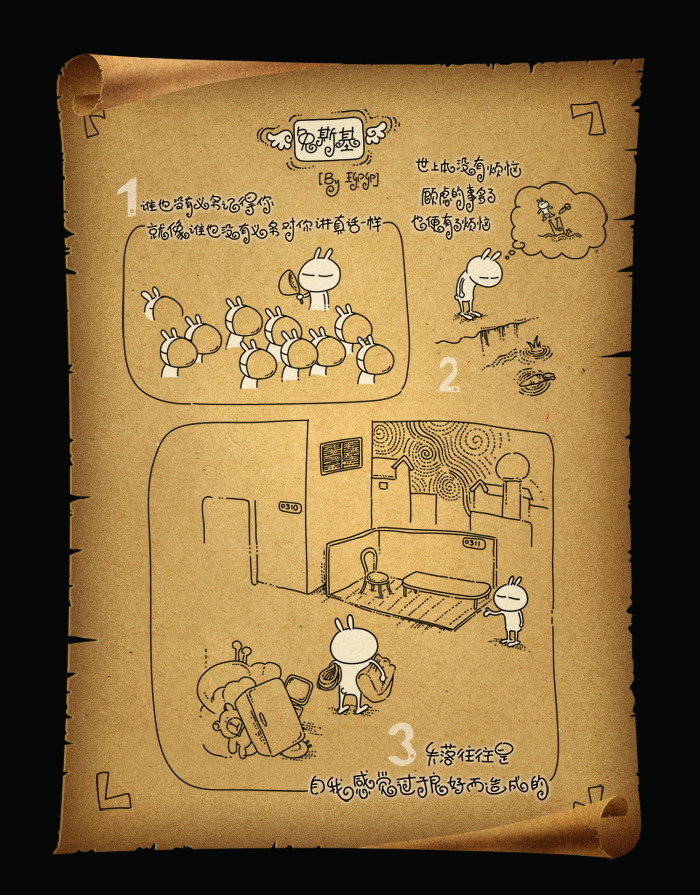 兔斯基
[By 聊卯]
1
谁也没有义务记得你
就像谁也没有义务对你讲真话一样
世上本没有烦恼
顾虑的事多了
也便有了烦恼
2
0310
0311
3 失落往往是
自我感觉过于良好而造成的